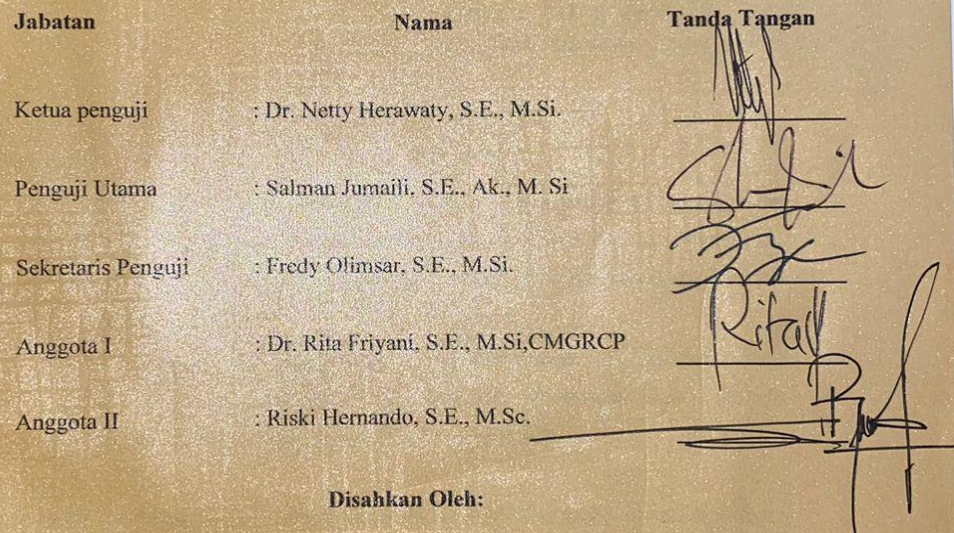 Jabatan Nama Tanda Tangan
Ketua penguji : Dr. Netty Herawaty, S.E., M.Si.
Penguji Utama : Salman Jumaili, S.E., Ak., M. Si
Sekretaris Penguji : Fredy Olimsar, S.E., M.Si.
Anggota I : Dr. Rita Friyani, S.E., M.Si,CMGRCP
Anggota II : Riski Hernando, S.E., M.Sc.
Disahkan Oleh: